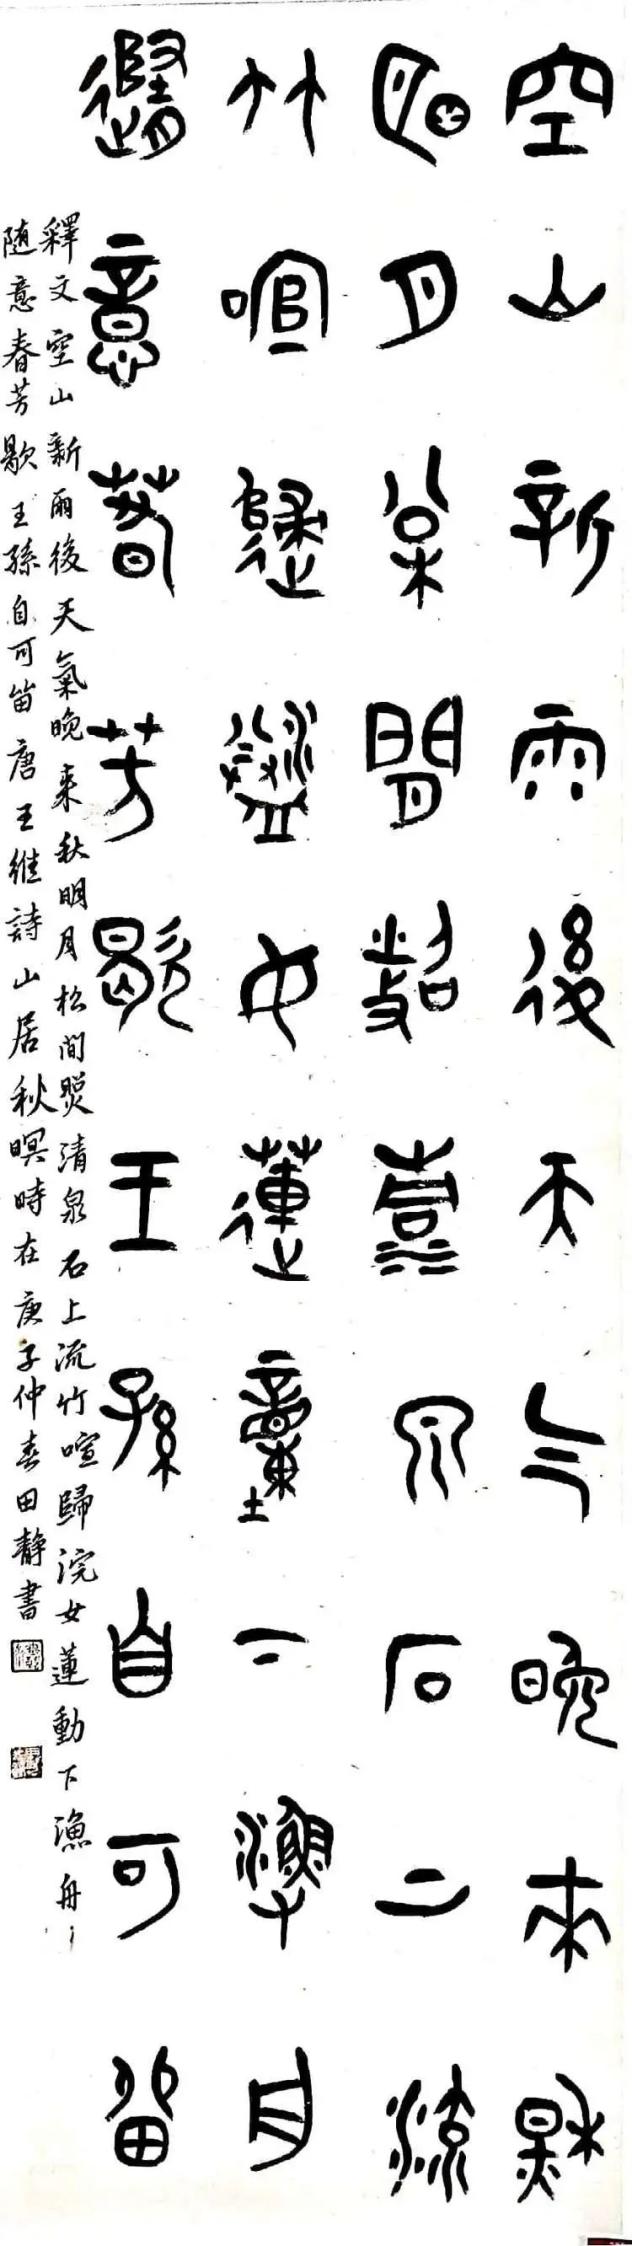 空山新雨後天气晚来秋
明月松間照清泉石上流
竹喧歸浣女蓮動下漁舟
隨意春芳歇王孫自可留
釋文空山新雨後天氣晚来秋明月松间照清泉石上流竹喧歸浣女蓮動下漁舟
随意春芳歇王孫自可留唐王維詩山居秋暝時在庚子仲春田静書